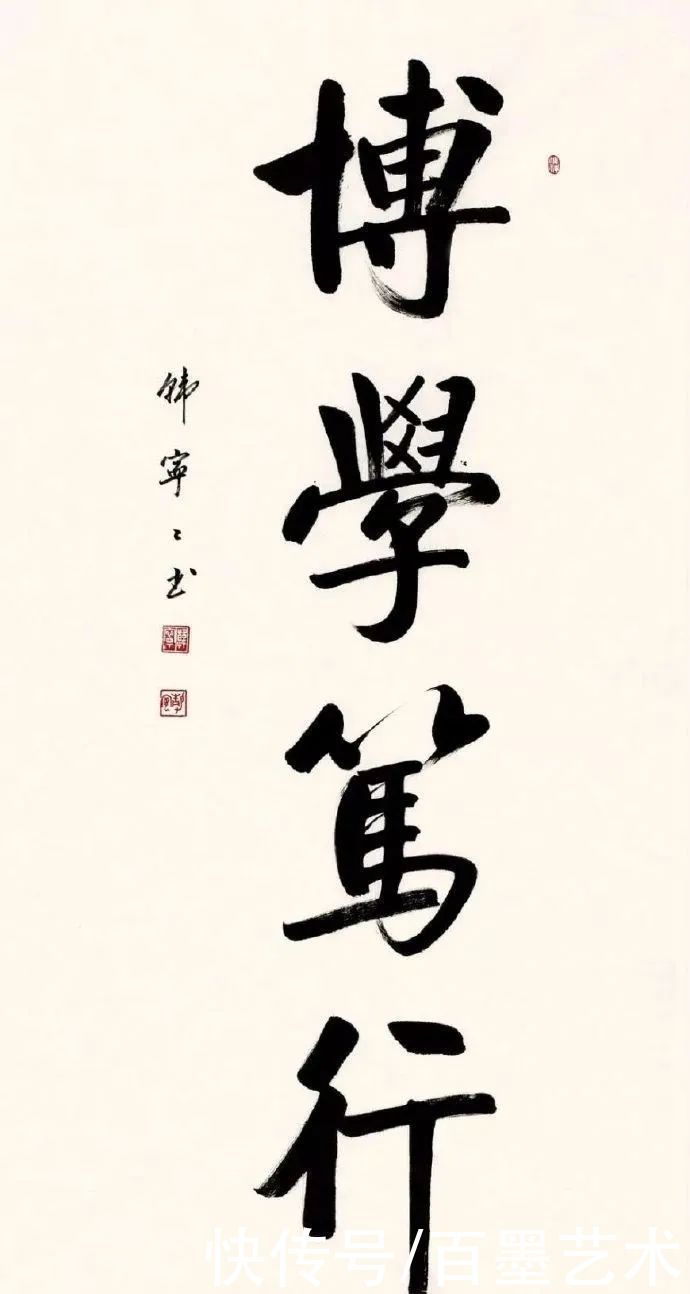 博學篤行
韩寧寧书
快传号/百墨艺术